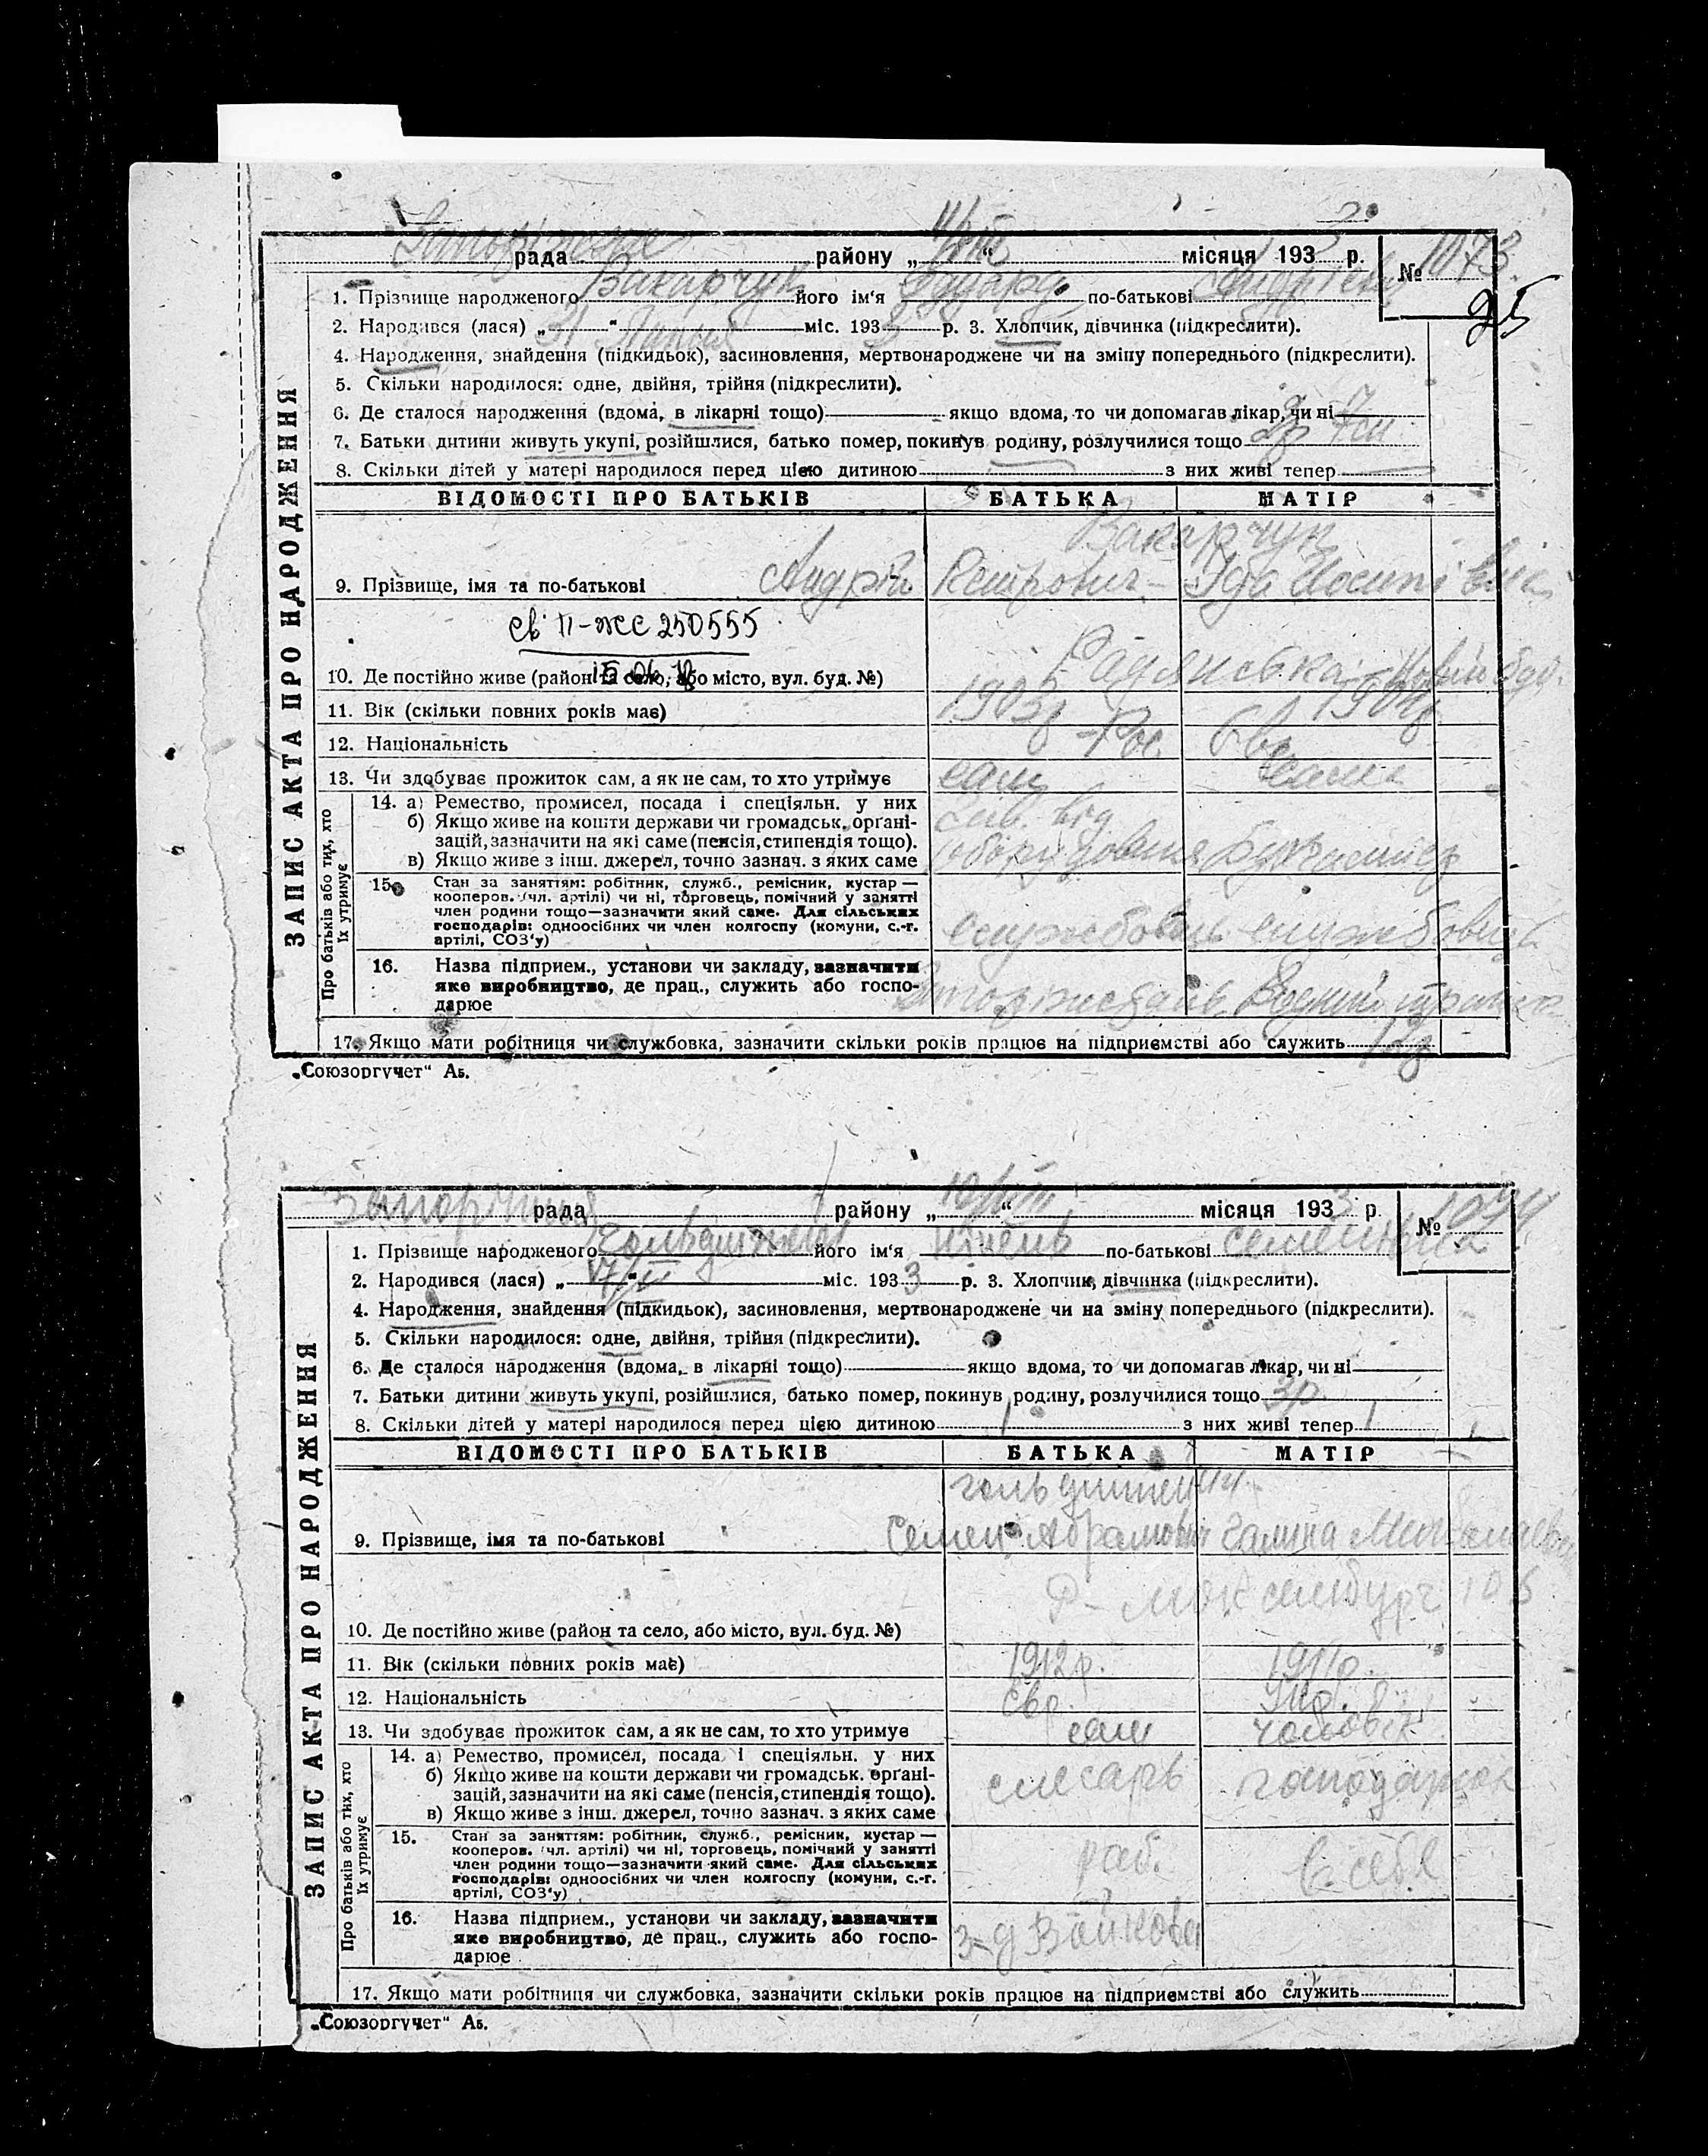 Запоріжська рада району „ “ місяця 1933 р. № 1073.
25
1. Прізвище народженого Вакарчук його ім‘я Едуард по-батькові
2. Народився (лася) „31“ Липня міс. 1933 р. 3. Хлопчик, дівчинка (підкреслити).
4. Народження, знайдення (підкидьок), засиновлення, мертвонароджене чи на зміну попереднього (підкреслити).
5. Скільки народилося: одне, двійня, трійня (підкреслити).
6. Де сталося народження (вдома, в лікарні тощо) якщо вдома, то чи допомагав лікар, чи ні
7. Батьки дитини живуть укупі, розійшлися, батько помер, покинув родину, розлучилися тощо
8. Скільки дітей у матері народилося перед цією дитиною з них живі тепер
ВІДОМОСТІ ПРО БАТЬКІВ БАТЬКА МАТІР
Вакарчук
9. Прізвище, імя та по-батькові Андрій Петрович - Іда Йосипівна
св П-ЖС 250555
10. Де постійно живе (район та село, або місто, вул. буд. №) Радянська
11. Вік (скільки повних років має) 1903р 1904р
12. Національність Рос. Євр.
13. Чи здобуває прожиток сам, а як не сам, то хто утримує сам сама
14. а) Ремество, промисел, посада і спеціяльн. у них Зав. від
б) Якщо живе на кошти держави чи громадськ. орґані-
зацій, зазначити на які саме (пенсія, стипендія тощо).
в) Якщо живе з інш. джерел, точно зазнач. з яких саме оборудовния Бухгалтер
15. Стан за заняттям: робітник, служб., ремісник, кустар —
кооперов. (чл. артілі) чи ні, торговець, помічний у занятті
член родини тощо—зазначити який саме. Для сільських
господарів: одноосібних чи член колгоспу (комуни, с.-г. службовець службовець
артілі, СОЗ‘у)
16. Назва підприєм., установи чи закладу, зазначити
яке виробництво, де прац., служить або госпо-
дарює
17. Якщо мати робітниця чи службовка, зазначити скільки років працює на підприємстві або служить
ЗАПИС АКТА ПРО НАРОДЖЕННЯ
Про батьків або тих, хто їх утримує
„Союзоргучет“ Аб.
Запоріжжя рада району „10/VIII“ місяця 1933 р. № 1074
1. Прізвище народженого Гольдштейн його ім‘я Нінель по-батькові Семенівна
2. Народився (лася) „ “ міс. 1933 р. 3. Хлопчик, дівчинка (підкреслити).
4. Народження, знайдення (підкидьок), засиновлення, мертвонароджене чи на зміну попереднього (підкреслити).
5. Скільки народилося: одне, двійня, трійня (підкреслити).
6. Де сталося народження (вдома, в лікарні тощо) якщо вдома, то чи допомагав лікар, чи ні
7. Батьки дитини живуть укупі, розійшлися, батько помер, покинув родину, розлучилися тощо 3р
8. Скільки дітей у матері народилося перед цією дитиною 1 з них живі тепер 1
ВІДОМОСТІ ПРО БАТЬКІВ БАТЬКА МАТІР
Гольдштейн
9. Прізвище, імя та по-батькові Семен Абрамович Галина
Р-Люксембург 105
10. Де постійно живе (район та село, або місто, вул. буд. №)
11. Вік (скільки повних років має) 1912р. 1911р.
12. Національність Євр. Укр.
13. Чи здобуває прожиток сам, а як не сам, то хто утримує сам чоловік
14. а) Ремество, промисел, посада і спеціяльн. у них
б) Якщо живе на кошти держави чи громадськ. орґані- слесарь господарюк
зацій, зазначити на які саме (пенсія, стипендія тощо).
в) Якщо живе з інш. джерел, точно зазнач. з яких саме
15. Стан за заняттям: робітник, служб., ремісник, кустар —
кооперов. (чл. артілі) чи ні, торговець, помічний у занятті
член родини тощо—зазначити який саме. Для сільських раб. в себе
господарів: одноосібних чи член колгоспу (комуни, с.-г.
артілі, СОЗ‘у)
16. Назва підприєм., установи чи закладу, зазначити
яке виробництво, де прац., служить або госпо- з-д Войкова
дарює
17. Якщо мати робітниця чи службовка, зазначити скільки років працює на підприємстві або служить
ЗАПИС АКТА ПРО НАРОДЖЕННЯ
Про батьків або тих, хто їх утримує
„Союзоргучет“ Аб.